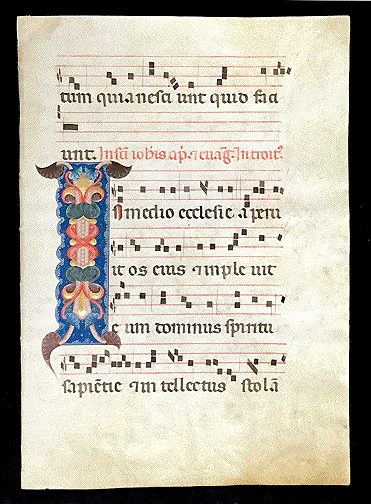 tum quia nesci unt quid faci
unt. In scī iohīs ap̄. ⁊ euāg̃. Introit⁹
In medio ecclesie aperu
it os eius ⁊ imple uit
e um dominus spiritu
sapiētie ⁊ in tellectus stolā